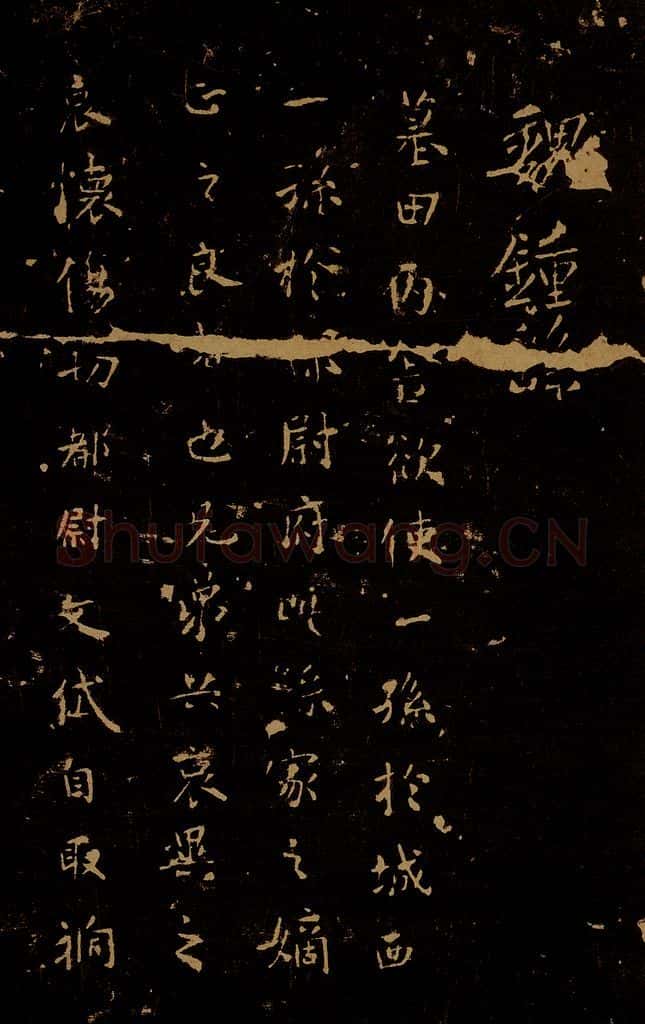 魏鍾繇
墓田丙舍欲使一孫於城西
一孫於都尉府此繇家之嫡
正之良者也兄共哀異之
哀懷傷切都尉文岱自取禍
shufawang.CN